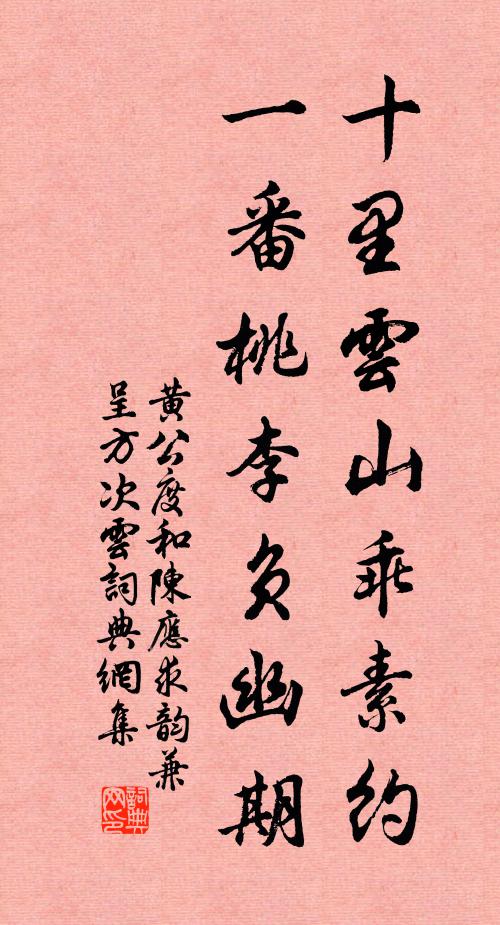 十里雲山乖素約
一番桃李負幽期
黄公度和陳應求韵兼
呈方次雲詞典網集
詞典网印